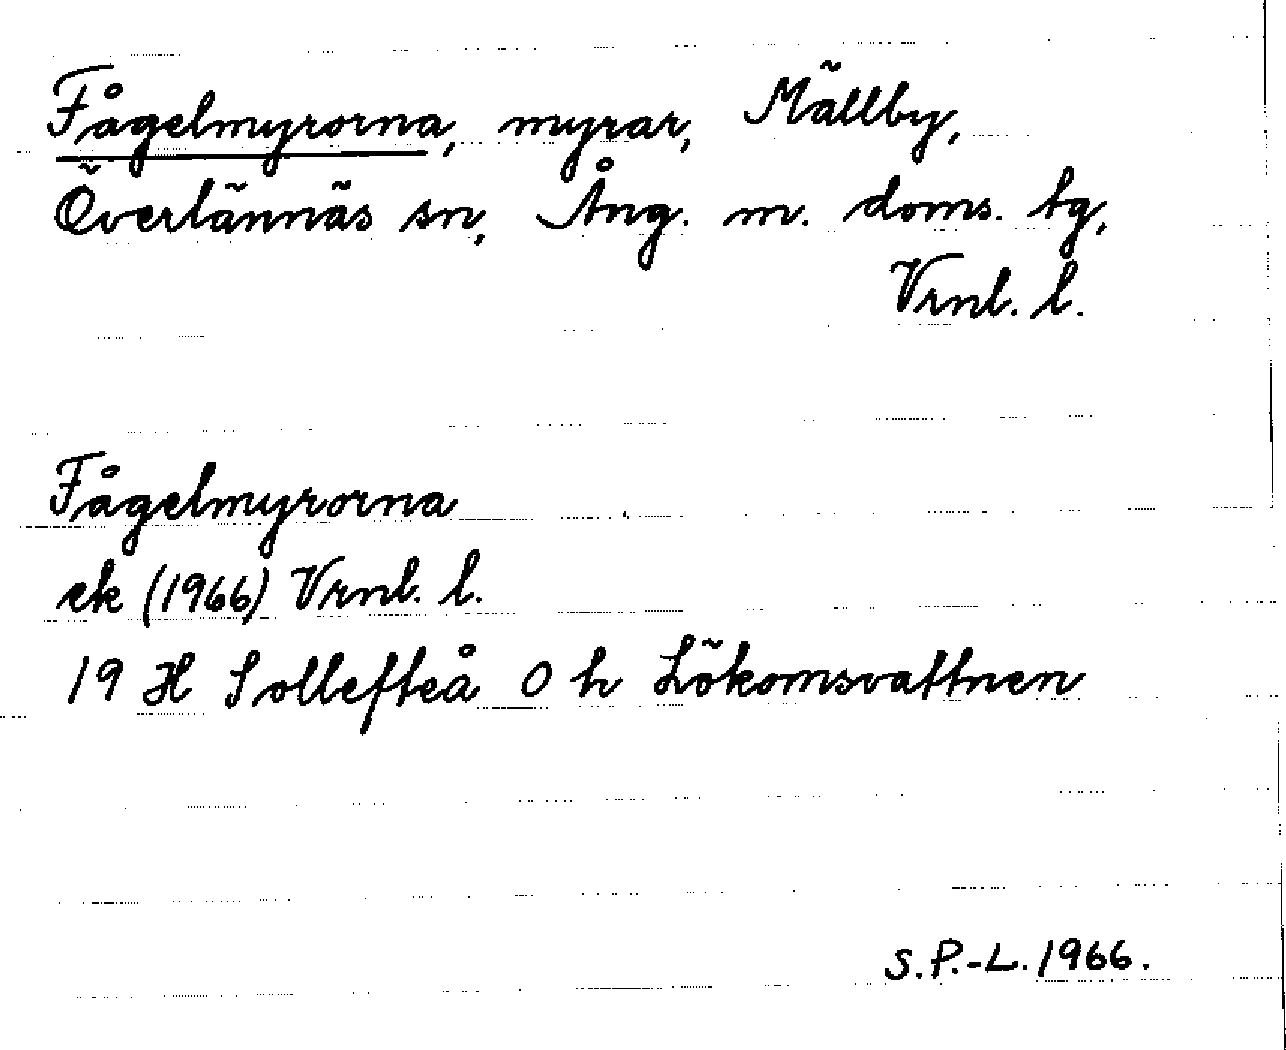 Fågelmyrorna, myrar, Mällby,
Överlännäs sn, Ång. m. doms. tg,
Vrnl. l.
Fågelmyrorna
ek (1966) Vrnl. l.
19 H Sollefteå 0 h Lökomsvattnen
S.P.-L. 1966.